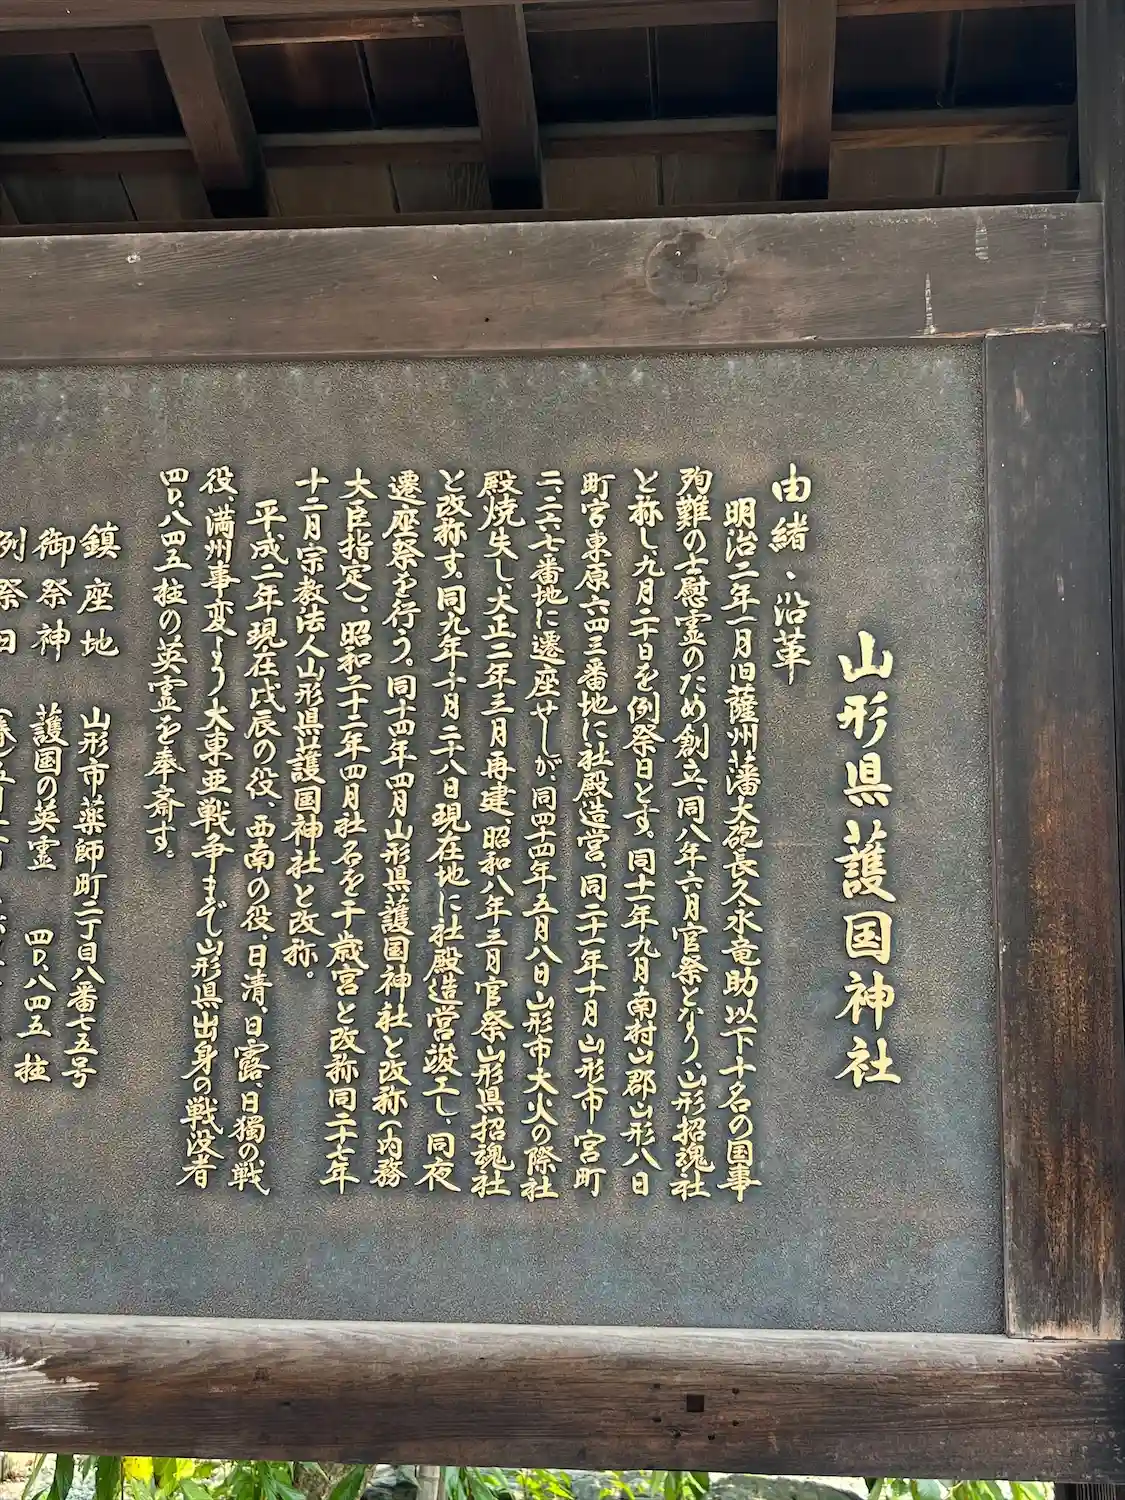 山形県護国神社
由緒・沿革
明治二年一月旧薩州藩大砲長久永竜助以下十名の国事
殉難の士慰霊のため創立、同八年六月官祭となり山形招魂社
と称し、九月二十日を例祭日とす。同十一年九月南村山郡山形八日
町字東原六四三番地に社殿造営、同二十一年十月山形市宮町
二、二六七番地に遷座せしが、同四十四年五月八日山形市大火の際社
殿焼失し大正二年三月再建、昭和八年三月官祭山形県招魂社
と改称す。同九年十月二十八日現在地に社殿造営竣工し、同夜
遷座祭を行う。同十四年四月山形県護国神社と改称(内務
大臣指定)、昭和二十二年四月社名を千歳宮と改称同二十七年
十二月宗教法人山形県護国神社と改称。
平成二年現在戊辰の役、西南の役、日清、日露、日獨の戦
役、満州事変より大東亜戦争まで山形県出身の戦没者
四〇、八四五柱の英霊を奉斎す。
鎮座地 山形市薬師町二丁目八番七五号
御祭神 護国の英霊 四〇、八四五柱
例祭日